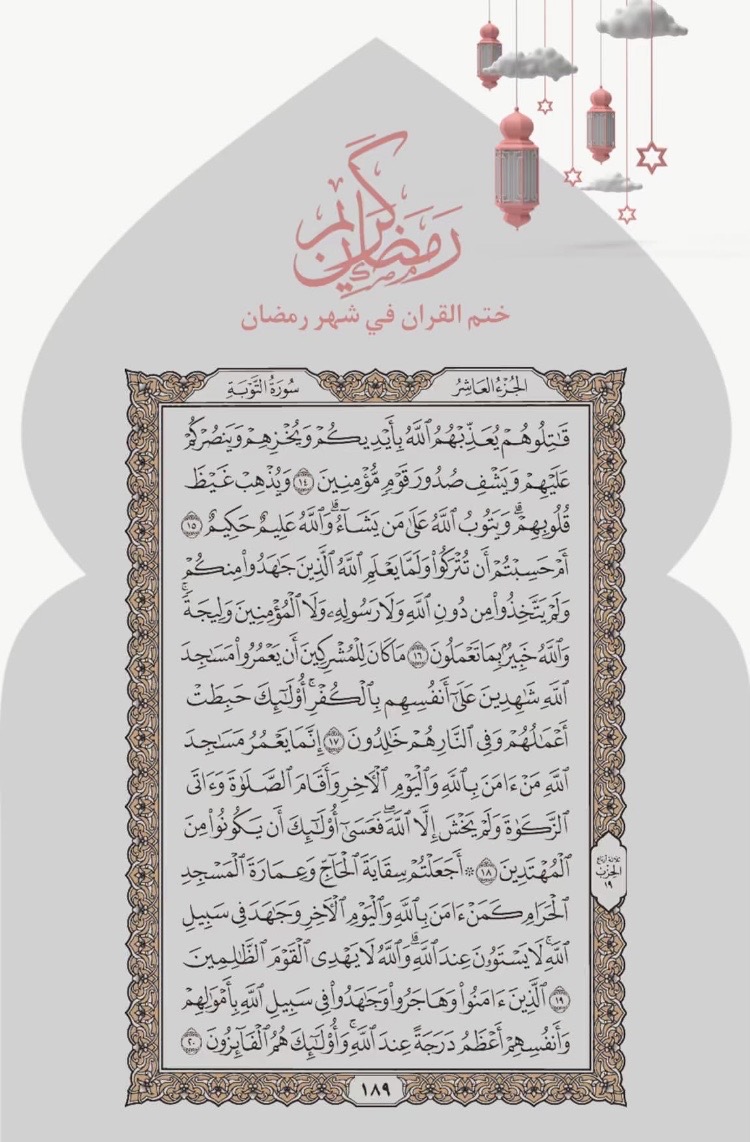 رمضان كريم
ختم القران في شهر رمضان
الجُزْءُ العَاشِرُ
سُورَةُ التَّوْبَةِ
قَٰتِلُوهُمْ يُعَذِّبْهُمُ ٱللَّهُ بِأَيْدِيكُمْ وَيُخْزِهِمْ وَيَنصُرْكُمْ
عَلَيْهِمْ وَيَشْفِ صُدُورَ قَوْمٍ مُّؤْمِنِينَ ١٤ وَيُذْهِبْ غَيْظَ
قُلُوبِهِمْۗ وَيَتُوبُ ٱللَّهُ عَلَىٰ مَن يَشَآءُۗ وَٱللَّهُ عَلِيمٌ حَكِيمٌ ١٥
أَمْ حَسِبْتُمْ أَن تُتْرَكُوا۟ وَلَمَّا يَعْلَمِ ٱللَّهُ ٱلَّذِينَ جَٰهَدُوا۟ مِنكُمْ
وَلَمْ يَتَّخِذُوا۟ مِن دُونِ ٱللَّهِ وَلَا رَسُولِهِۦ وَلَا ٱلْمُؤْمِنِينَ وَلِيجَةًۚ
وَٱللَّهُ خَبِيرٌۢ بِمَا تَعْمَلُونَ ١٦ مَا كَانَ لِلْمُشْرِكِينَ أَن يَعْمُرُوا۟ مَسَٰجِدَ
ٱللَّهِ شَٰهِدِينَ عَلَىٰٓ أَنفُسِهِم بِٱلْكُفْرِۚ أُو۟لَٰٓئِكَ حَبِطَتْ
أَعْمَٰلُهُمْ وَفِى ٱلنَّارِ هُمْ خَٰلِدُونَ ١٧ إِنَّمَا يَعْمُرُ مَسَٰجِدَ
ٱللَّهِ مَنْ ءَامَنَ بِٱللَّهِ وَٱلْيَوْمِ ٱلْءَاخِرِ وَأَقَامَ ٱلصَّلَوٰةَ وَءَاتَى
ٱلزَّكَوٰةَ وَلَمْ يَخْشَ إِلَّا ٱللَّهَۖ فَعَسَىٰٓ أُو۟لَٰٓئِكَ أَن يَكُونُوا۟ مِنَ
ٱلْمُهْتَدِينَ ١٨ ۞ أَجَعَلْتُمْ سِقَايَةَ ٱلْحَآجِّ وَعِمَارَةَ ٱلْمَسْجِدِ
ثلاثة أرباع
الحزب
١٩
ٱلْحَرَامِ كَمَنْ ءَامَنَ بِٱللَّهِ وَٱلْيَوْمِ ٱلْءَاخِرِ وَجَٰهَدَ فِى سَبِيلِ
ٱللَّهِۚ لَا يَسْتَوُۥنَ عِندَ ٱللَّهِۗ وَٱللَّهُ لَا يَهْدِى ٱلْقَوْمَ ٱلظَّٰلِمِينَ
١٩ ٱلَّذِينَ ءَامَنُوا۟ وَهَاجَرُوا۟ وَجَٰهَدُوا۟ فِى سَبِيلِ ٱللَّهِ بِأَمْوَٰلِهِمْ
وَأَنفُسِهِمْ أَعْظَمُ دَرَجَةً عِندَ ٱللَّهِۚ وَأُو۟لَٰٓئِكَ هُمُ ٱلْفَآئِزُونَ ٢٠
١٨٩